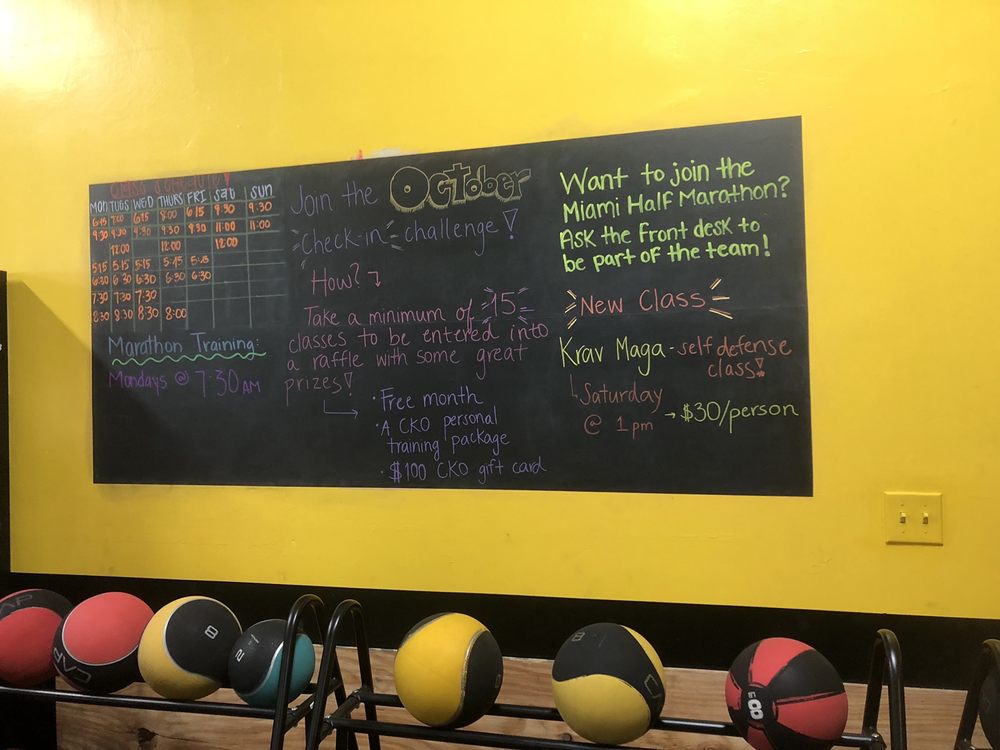 Class Schedule!
MON TUES WED THURS FRI SAT SUN
6:45 7:00 6:45 8:00 6:15 8:30 9:30
9:30 9:30 9:30 9:30 9:30 11:00 11:00
12:00 12:00 12:00
5:15 5:15 5:15 5:45 5:45
6:30 6:30 6:30 6:30 6:30
7:30 7:30 7:30
8:30 8:30 8:30 8:00
Marathon Training:
Mondays @ 7:30AM
Join the October
Check-in challenge!
How?
Take a minimum of 15
classes to be entered into
a raffle with some great
prizes!
· Free month
· A CKO personal
training package
· $100 CKO gift card
Want to join the
Miami Half Marathon?
Ask the front desk to
be part of the team!
New Class
Krav Maga - self defense
class!
Saturday
@ 1pm → $30/person
CAP
8
2
8
8